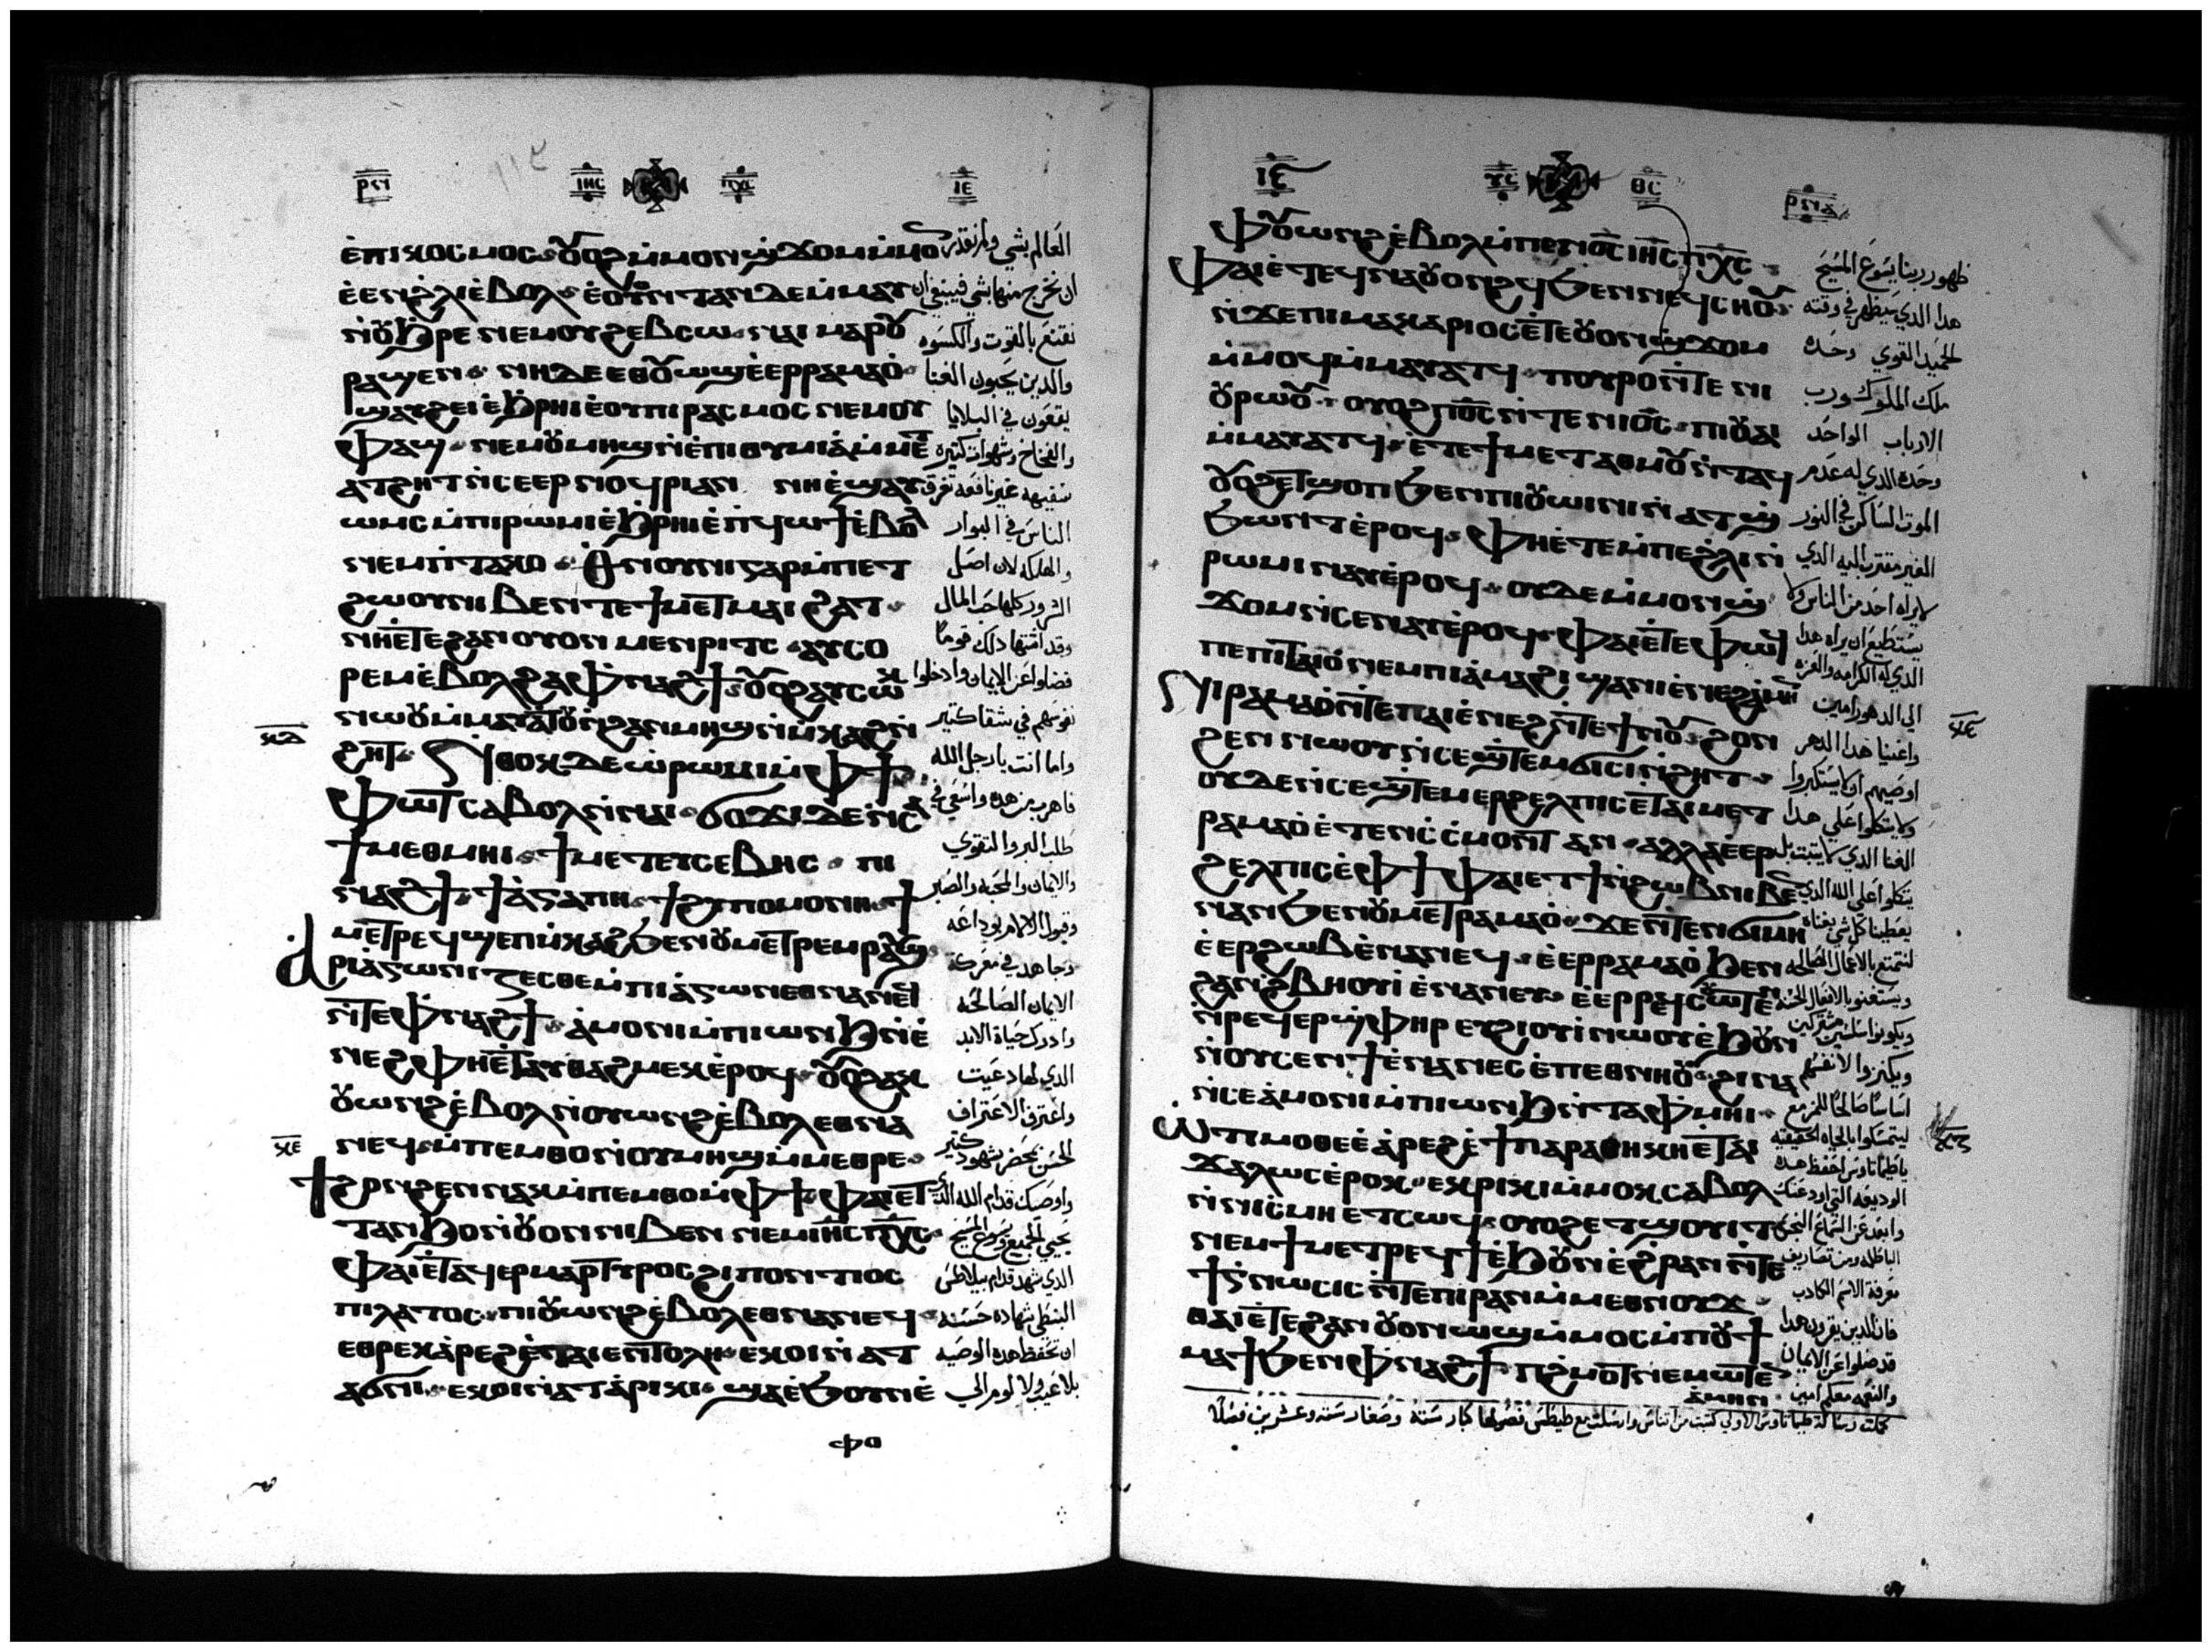 ⲣⲛⲓ ⲓⲏⲥ ⲡⲭⲥ ⲓⲉ
ⲉ̀ⲡⲓⲕⲟⲥⲙⲟⲥ ⲟⲩⲟϩ ⲙ̀ⲙⲟⲛ ϣϫⲟⲙ ⲙ̀ⲙⲟⲛ
ⲉ̀ⲉⲛ ϩⲗⲓ ⲉ̀ⲃⲟⲗ ⲉ̀ⲟⲩⲟⲛⲧⲁⲛ ⲇⲉ ⲙ̀ⲙⲁⲩ
ⲛ̀ⲟⲩϧⲣⲉ ⲛⲉⲙ ⲟⲩϩⲉⲃⲥⲱ ⲛⲁⲓ ⲙⲁⲣⲟⲩ
ⲣⲁϣⲉⲛ ⲛⲏ ⲇⲉ ⲉⲑⲟⲩⲱϣ ⲉ̀ⲉⲣⲣⲁⲙⲁⲟ̀
ϣⲁⲩϩⲉⲓ ⲉ̀ϧⲣⲏⲓ ⲉ̀ⲟⲩⲡⲓⲣⲁⲥⲙⲟⲥ ⲛⲉⲙ ⲟⲩ
ⲫⲁϣ ⲛⲉⲙ ⲟⲩⲙⲏϣ ⲛ̀ⲉⲡⲓⲑⲩⲙⲓⲁ̀ ⲙ̀ⲙⲉⲧ
ⲁⲧϩⲏⲧ ⲛ̀ⲥⲉⲉⲣⲛⲟϥⲣⲓ ⲁⲛ ⲛⲏ ⲉ̀ϣⲁⲩ
ⲱⲙⲥ ⲙ̀ⲡⲓⲣⲱⲙⲓ ⲉ̀ϧⲣⲏⲓ ⲉ̀ⲡϥⲱϯ ⲉ̀ⲃⲟⲗ
ⲛⲉⲙ ⲡ̀ⲧⲁⲕⲟ ⲑⲛⲟⲩⲛⲓ ⲅⲁⲣ ⲙ̀ⲡⲉⲧ
ϩⲱⲟⲩ ⲛⲓⲃⲉⲛ ⲧⲉ ϯⲙⲉⲧⲙⲁⲓϩⲁⲧ
ⲛⲏ ⲉⲧⲉ ϩⲁⲛⲟⲩⲟⲛ ⲙⲉⲛⲣⲓⲧⲥ ⲁⲩⲥⲟ
ⲣⲉⲙ ⲉ̀ⲃⲟⲗ ϩⲁ ⲫⲛⲁϩϯ ⲟⲩⲟϩ ⲁⲩⲥⲱⲕ
ⲛⲱⲟⲩ ⲙ̀ⲙⲁⲩⲁⲧⲟⲩ ⲛ̀ϩⲁⲛⲙⲏϣ ⲙ̀ⲙ̀ⲕⲁϩ ⲛ̀
ϩⲏⲧ Ⲛ̀ⲑⲟⲕ ⲇⲉ ⲱ̀ ⲡⲣⲱⲙⲓ ⲙ̀ⲫϯ
ⲝⲇ
ⲫⲱⲧ ⲥⲁⲃⲟⲗ ⲛ̀ⲛⲁⲓ ϭⲟϫⲓ ⲇⲉ ⲛ̀ⲥⲁ
ϯⲙⲉⲑⲙⲏⲓ ϯⲙⲉⲧⲉⲩⲥⲉⲃⲏⲥ ⲡⲓ
ⲛⲁϩϯ ϯⲁ̀ⲅⲁⲡⲏ ϯϩⲩⲡⲟⲙⲟⲛⲏ ϯ
ⲙⲉⲧⲣⲉϥϣⲉⲡⲙ̀ⲕⲁϩ ϧⲉⲛ ⲟⲩⲙⲉⲧⲣⲉⲙⲣⲁⲩϣ
ⲁ̀ⲣⲓⲁ̀ⲅⲱⲛⲓⲍⲉⲥⲑⲉ ⲙ̀ⲡⲓⲁ̀ⲅⲱⲛ ⲉⲑⲛⲁⲛⲉϥ
ⲛ̀ⲧⲉ ⲫⲛⲁϩϯ ⲁ̀ⲙⲟⲛⲓ ⲙ̀ⲡⲓⲱⲛϧ ⲛ̀ⲉ̀
ⲛⲉϩ ⲫⲏ ⲉ̀ⲧⲁⲩⲑⲁϩⲙⲉⲕ ⲉ̀ⲣⲟϥ ⲟⲩⲟϩ ⲁⲕ
ⲟⲩⲱⲛϩ ⲉ̀ⲃⲟⲗ ⲛ̀ⲟⲩⲱⲛϩ ⲉ̀ⲃⲟⲗ ⲉⲑⲛⲁ
ⲛⲉϥ ⲙ̀ⲡⲉⲙⲑⲟ ⲛ̀ⲟⲩⲙⲏϣ ⲙ̀ⲙⲉⲑⲣⲉ
ⲝⲉ
ϯϩⲟⲛϩⲉⲛ ⲛⲁⲕ ⲙ̀ⲡⲉⲙⲑⲟ ⲙ̀ⲫϯ ⲫⲁⲓ ⲉⲧ
ⲧⲁⲛϧⲟ ⲛ̀ⲟⲩⲟⲛ ⲛⲓⲃⲉⲛ ⲛⲉⲙ ⲓⲏⲥ ⲡⲭⲥ
ⲫⲁⲓ ⲉ̀ⲧⲁϥⲉⲣⲙⲁⲣⲧⲩⲣⲟⲥ ϩⲓ ⲡⲟⲛⲧⲓⲟⲥ
ⲡⲓⲗⲁⲧⲟⲥ ⲡⲓⲟⲩⲱⲛϩ ⲉ̀ⲃⲟⲗ ⲉⲑⲛⲁⲛⲉϥ
ⲉⲑⲣⲉⲕⲁ̀ⲣⲉϩ ⲉ̀ⲧⲁⲓⲉⲛⲧⲟⲗⲏ ⲉⲕⲟⲓ ⲛ̀ⲁⲧ
ⲁϭⲛⲓ ⲉⲕⲟⲓ ⲛ̀ⲁⲧⲁ̀ⲣⲓⲕⲓ ϣⲁ ⲉ̀ϧⲟⲩⲛ ⲉ̀
ⲫⲟ
العالم بشي ولم نقدر
ان نخرج منها بشي فينبغي ان
نقتنع بالقوت والكسوه
والدين يحبون الغنا
يقعون في البلايا
والفخاخ وشهوات كتيره
سفيهه غير نافعه تغرق
الناس في البوار
والهلكه لان اصل
الشرور كلها حب المال
وقد اشتها دلك قوما
فضلوا عن الايمان وادخلوا
نفوسهم في شقا كتير
واما انت يا رجل الله
فاهرب من هده واسعي في
طلب البر والتقوي
والايمان والمحبه والصبر
وقبول الالام بوداعه
وجاهد في معركة
الايمان الصالحه
وادرك حياة الابد
الدي لها دعيت
واعترف الاعتراف
الحسن بحضر شهود كتير
واوصيك قدام الله الدي
يحيي الجميع ويسوع المسيح
الدي شهد قدام بيلاطس
البنطي شهاده حسنه
ان تحفظ هده الوصيه
بلا عيب ولا لوم الي
ⲓⲉ ⲩⲥ ⲑⲥ ⲣⲛⲓⲁ
ⲫⲟⲩⲱⲛϩ ⲉ̀ⲃⲟⲗ ⲙ̀ⲡⲉⲛⲟⲥ ⲓⲏⲥ ⲡⲭⲥ
ⲫⲁⲓ ⲉ̀ⲧⲉϥⲛⲁⲟⲩⲟⲛϩϥ ϧⲉⲛ ⲛⲉϥⲥⲏⲟⲩ
ⲛ̀ϫⲉ ⲡⲓⲙⲁⲕⲁⲣⲓⲟⲥ ⲉ̀ⲧⲉ ⲟⲩⲟⲛ ϣϫⲟⲙ
ⲙ̀ⲙⲟϥ ⲙ̀ⲙⲁⲩⲁⲧϥ ⲡⲟⲩⲣⲟ ⲛ̀ⲧⲉ ⲛⲓ
ⲟⲩⲣⲱⲟⲩ ⲟⲩⲟϩ ⲡⲟⲥ ⲛ̀ⲧⲉ ⲛⲓⲟⲥ ⲡⲓⲟⲩⲁⲓ
ⲙ̀ⲙⲁⲩⲁⲧϥ ⲉ̀ⲧⲉ ϯⲙⲉⲧⲁⲑⲙⲟⲩ ⲛ̀ⲧⲁϥ
ⲟⲩⲟϩ ⲉⲧϣⲟⲡ ϧⲉⲛ ⲡⲓⲟⲩⲱⲓⲛⲓ ⲛ̀ⲁⲧϣ
ϧⲱⲛⲧ ⲉ̀ⲣⲟϥ ⲫⲏ ⲉ̀ⲧⲉ ⲙ̀ⲡⲉ ϩⲗⲓ ⲛ̀
ⲣⲱⲙⲓ ⲛⲁⲩ ⲉ̀ⲣⲟϥ ⲟⲩⲇⲉ ⲙ̀ⲙⲟⲛ ϣ
ϫⲟⲙ ⲛ̀ⲥⲉⲛⲁⲩ ⲉ̀ⲣⲟϥ ⲫⲁⲓ ⲉ̀ⲧⲉ ⲫⲱϥ
ⲡⲉ ⲡⲓⲧⲁⲓⲟ̀ ⲛⲉⲙ ⲡⲓⲁ̀ⲙⲁϩⲓ ϣⲁ ⲛⲓⲉ̀ⲛⲉϩ ⲁ̀ⲙⲏⲛ
ⲛⲓⲣⲁⲙⲁⲟ̀ ⲛ̀ⲧⲉ ⲡⲁⲓⲉ̀ⲛⲉϩ ⲛ̀ⲧⲉ ϯⲛⲟⲩ ϩⲟⲛ
ⲝⲋ
ϩⲉⲛ ⲛⲱⲟⲩ ⲛ̀ⲥⲉϣⲧⲉⲙϭⲓⲥⲓ ⲛ̀ϩⲏⲧ
ⲟⲩⲇⲉ ⲛ̀ⲥⲉϣⲧⲉⲙⲉⲣϩⲉⲗⲡⲓⲥ ⲉ̀ⲧⲁⲓⲙⲉⲧ
ⲣⲁⲙⲁⲟ̀ ⲉ̀ⲧⲉⲛⲥ̀ⲥ̀ⲙⲟⲛⲧ ⲁⲛ ⲁⲗⲗⲁ ⲉ̀ⲉⲣ
ϩⲉⲗⲡⲓⲥ ⲉ̀ⲫϯ ⲫⲁⲓ ⲉⲧϯ ⲛ̀ϩⲱⲃ ⲛⲓⲃⲉⲛ
ⲛⲁⲛ ϧⲉⲛ ⲟⲩⲙⲉⲧⲣⲁⲙⲁⲟ̀ ϫⲉ ⲛ̀ⲧⲉⲛϭⲓⲙⲏ
ⲉ̀ⲉⲣϩⲱⲃ ⲉ̀ⲛⲁⲛⲉϥ ⲉ̀ⲉⲣⲣⲁⲙⲁⲟ̀ ϧⲉⲛ
ϩⲁⲛϩⲃⲏⲟⲩⲓ̀ ⲉ̀ⲛⲁⲛⲉⲩ ⲉ̀ⲉⲣⲣⲉϥⲥⲱⲧⲉⲛ
ⲛ̀ⲣⲉϥⲉⲣϣⲫⲏⲣ ⲉⲩϩⲓⲟⲩⲓ̀ ⲛⲱⲟⲩ ⲉ̀ϧⲟⲩⲛ
ⲛ̀ⲟⲩⲥⲉⲛϯ ⲉ̀ⲛⲁⲛⲉⲥ ⲉ̀ⲡⲉⲑⲛⲏⲟⲩ ϩⲓⲛⲁ
ⲛ̀ⲥⲉⲁ̀ⲙⲟⲛⲓ ⲙ̀ⲡⲓⲱⲛϧ ⲛ̀ⲧⲁⲫⲙⲏⲓ
Ⲱ̀ ⲧⲓⲙⲟⲑⲉⲉ ⲁ̀ⲣⲉϩ ⲉ̀ϯⲡⲁⲣⲁⲑⲏⲕⲏ ⲉ̀ⲧⲁⲓ
ⲝⲍ
ⲭⲁⲗⲱⲥ ⲉ̀ⲣⲟⲕ ⲉⲕⲣⲓⲕⲓ ⲙ̀ⲙⲟⲕ ⲥⲁⲃⲟⲗ
ⲛ̀ⲛⲓⲥ̀ⲙⲏ ⲉⲧⲥⲱϥ ⲟⲩⲟϩ ⲉⲧϣⲟⲩⲓⲧ
ⲛⲉⲙ ϯⲙⲉⲧⲣⲉϥϯ ⲉ̀ϧⲟⲩⲛ ⲉ̀ϩⲣⲁⲛ ⲛ̀ⲧⲉ
ϯⲅⲛⲱⲥⲓⲥ ⲛ̀ⲧⲉ ⲡⲓⲣⲁⲛ ⲙ̀ⲙⲉⲑⲛⲟⲩϫ
ⲑⲁⲓ ⲉ̀ⲧⲉ ϩⲁⲛⲟⲩⲟⲛ ⲱϣ ⲙ̀ⲙⲟⲥ ⲙ̀ⲡⲟⲩϯ
ⲙⲁϯ ϧⲉⲛ ⲫⲛⲁϩϯ ⲡϩⲙⲟⲧ ⲛⲉⲙⲱⲧⲉⲛ
ⲁ̀ⲙⲏⲛ
ظهور ربنا يسوع المسيح
هدا الدي سيظهر في وقته
الحميد القوي وحده
ملك الملوك ورب
الارباب الواحد
وحده الدي له عدم
الموت الساكن في النور
الغير مقترب اليه الدي
لا يراه احد من الناس ولا
يستطيع ان يراه هدا
الدي له الكرامه والعزه
الي الدهور امين
واغنيا هدا الدهر
اوصيهم ان لا يستكبروا
ولا يتكلوا علي هدا
الغنا الدي لا يثبت بل
يتكلوا علي الله الدي
يعطينا كل شي بغناه
لنتمتع بالاعمال الصالحه
ويستغنو بالافعال الحسنه
ويكونوا سلسين مشتركين
ويكنزوا لانفسهم
اساسا صالحا للمزمع
ليتمسكوا بالحياه الحقيقيه
يا طيماتاوس احفظ هده
الوديعه التي اودعتك
وابعد عن السماع النجس
الباطله ومن تصاريف
معرفة الاسم الكادب
فان الدين يقرون هدا
قد ضلوا عن الايمان
والنعمه معكم امين
كملت رسالة طيماتاوس الاولي كتبت من اتناس وارسلت مع طيطس فصولها كبار سته وصغار سته وعشرين فصلا